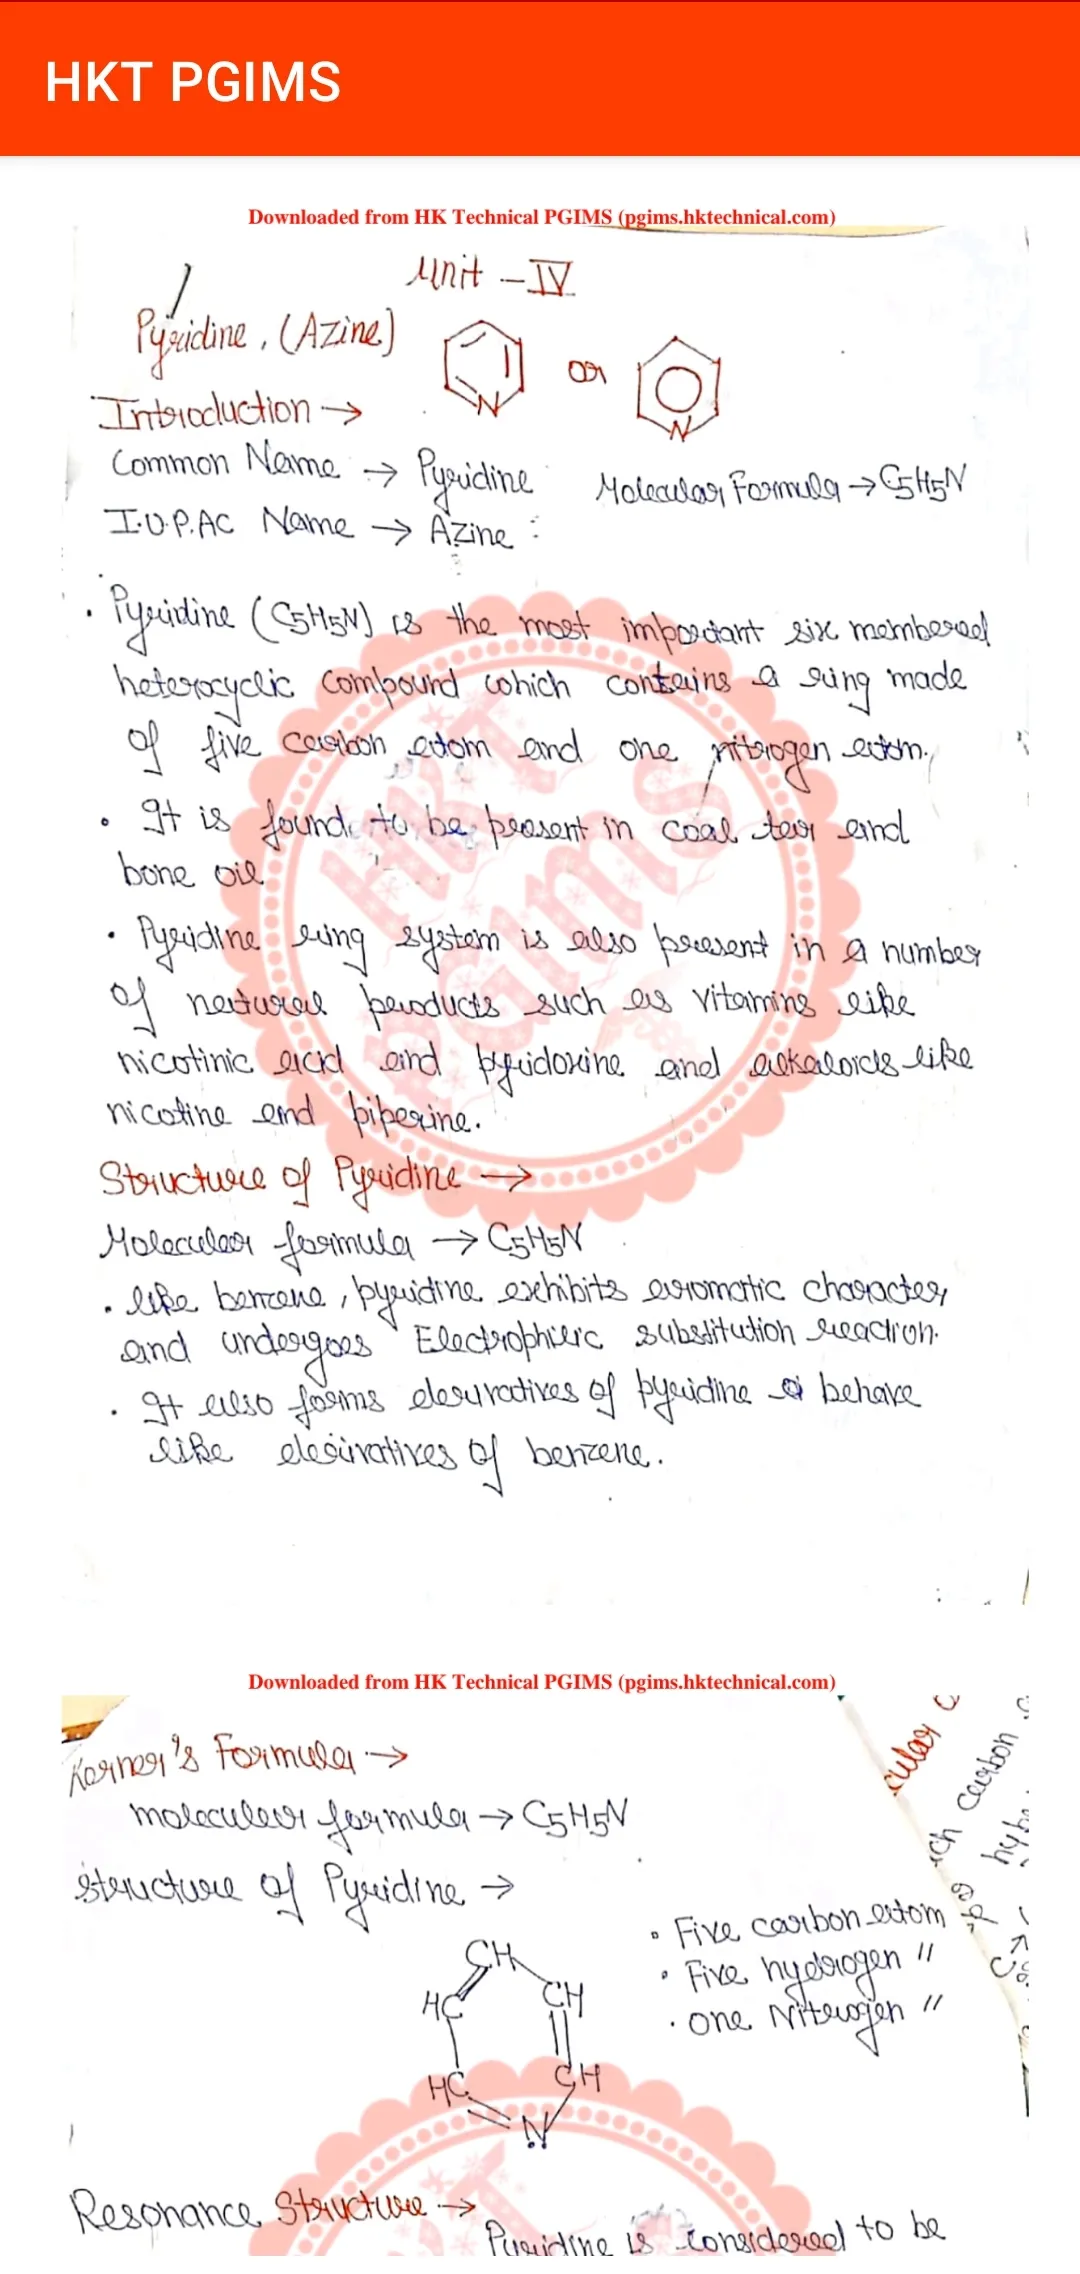 HKT PGIMS
Downloaded from HK Technical PGIMS (pgims.hktechnical.com)
Unit - IV
Pyridine, (Azine)
N or N
Introduction →
Common Name → Pyridine
Molecular Formula → C5H5N
I.U.P.AC Name → Azine
• Pyridine (C5H5N) is the most important six membered
heterocyclic compound which contains a ring made
of five carbon atom and one nitrogen atom.
• It is found to be present in coal tar and
bone oil
• Pyridine ring system is also present in a number
of natural products such as vitamins like
nicotinic acid and pyridoxine and alkaloids like
nicotine and piperine.
Structure of Pyridine →
Molecular formula → C5H5N
• like benzene, pyridine exhibits aromatic character
and undergoes Electrophilic substitution reaction.
• It also forms derivatives of pyridine behave
like derivatives of benzene.
HKT
PGIMS
Downloaded from HK Technical PGIMS (pgims.hktechnical.com)
Korner's Formula →
molecular formula → C5H5N
structure of Pyridine →
• Five carbon atom
• Five hydrogen "
• one Nitrogen "
CH
HC CH
HC CH
N
cular
ch carbon
hyb
Resonance Structure →
Pyridine is considered to be